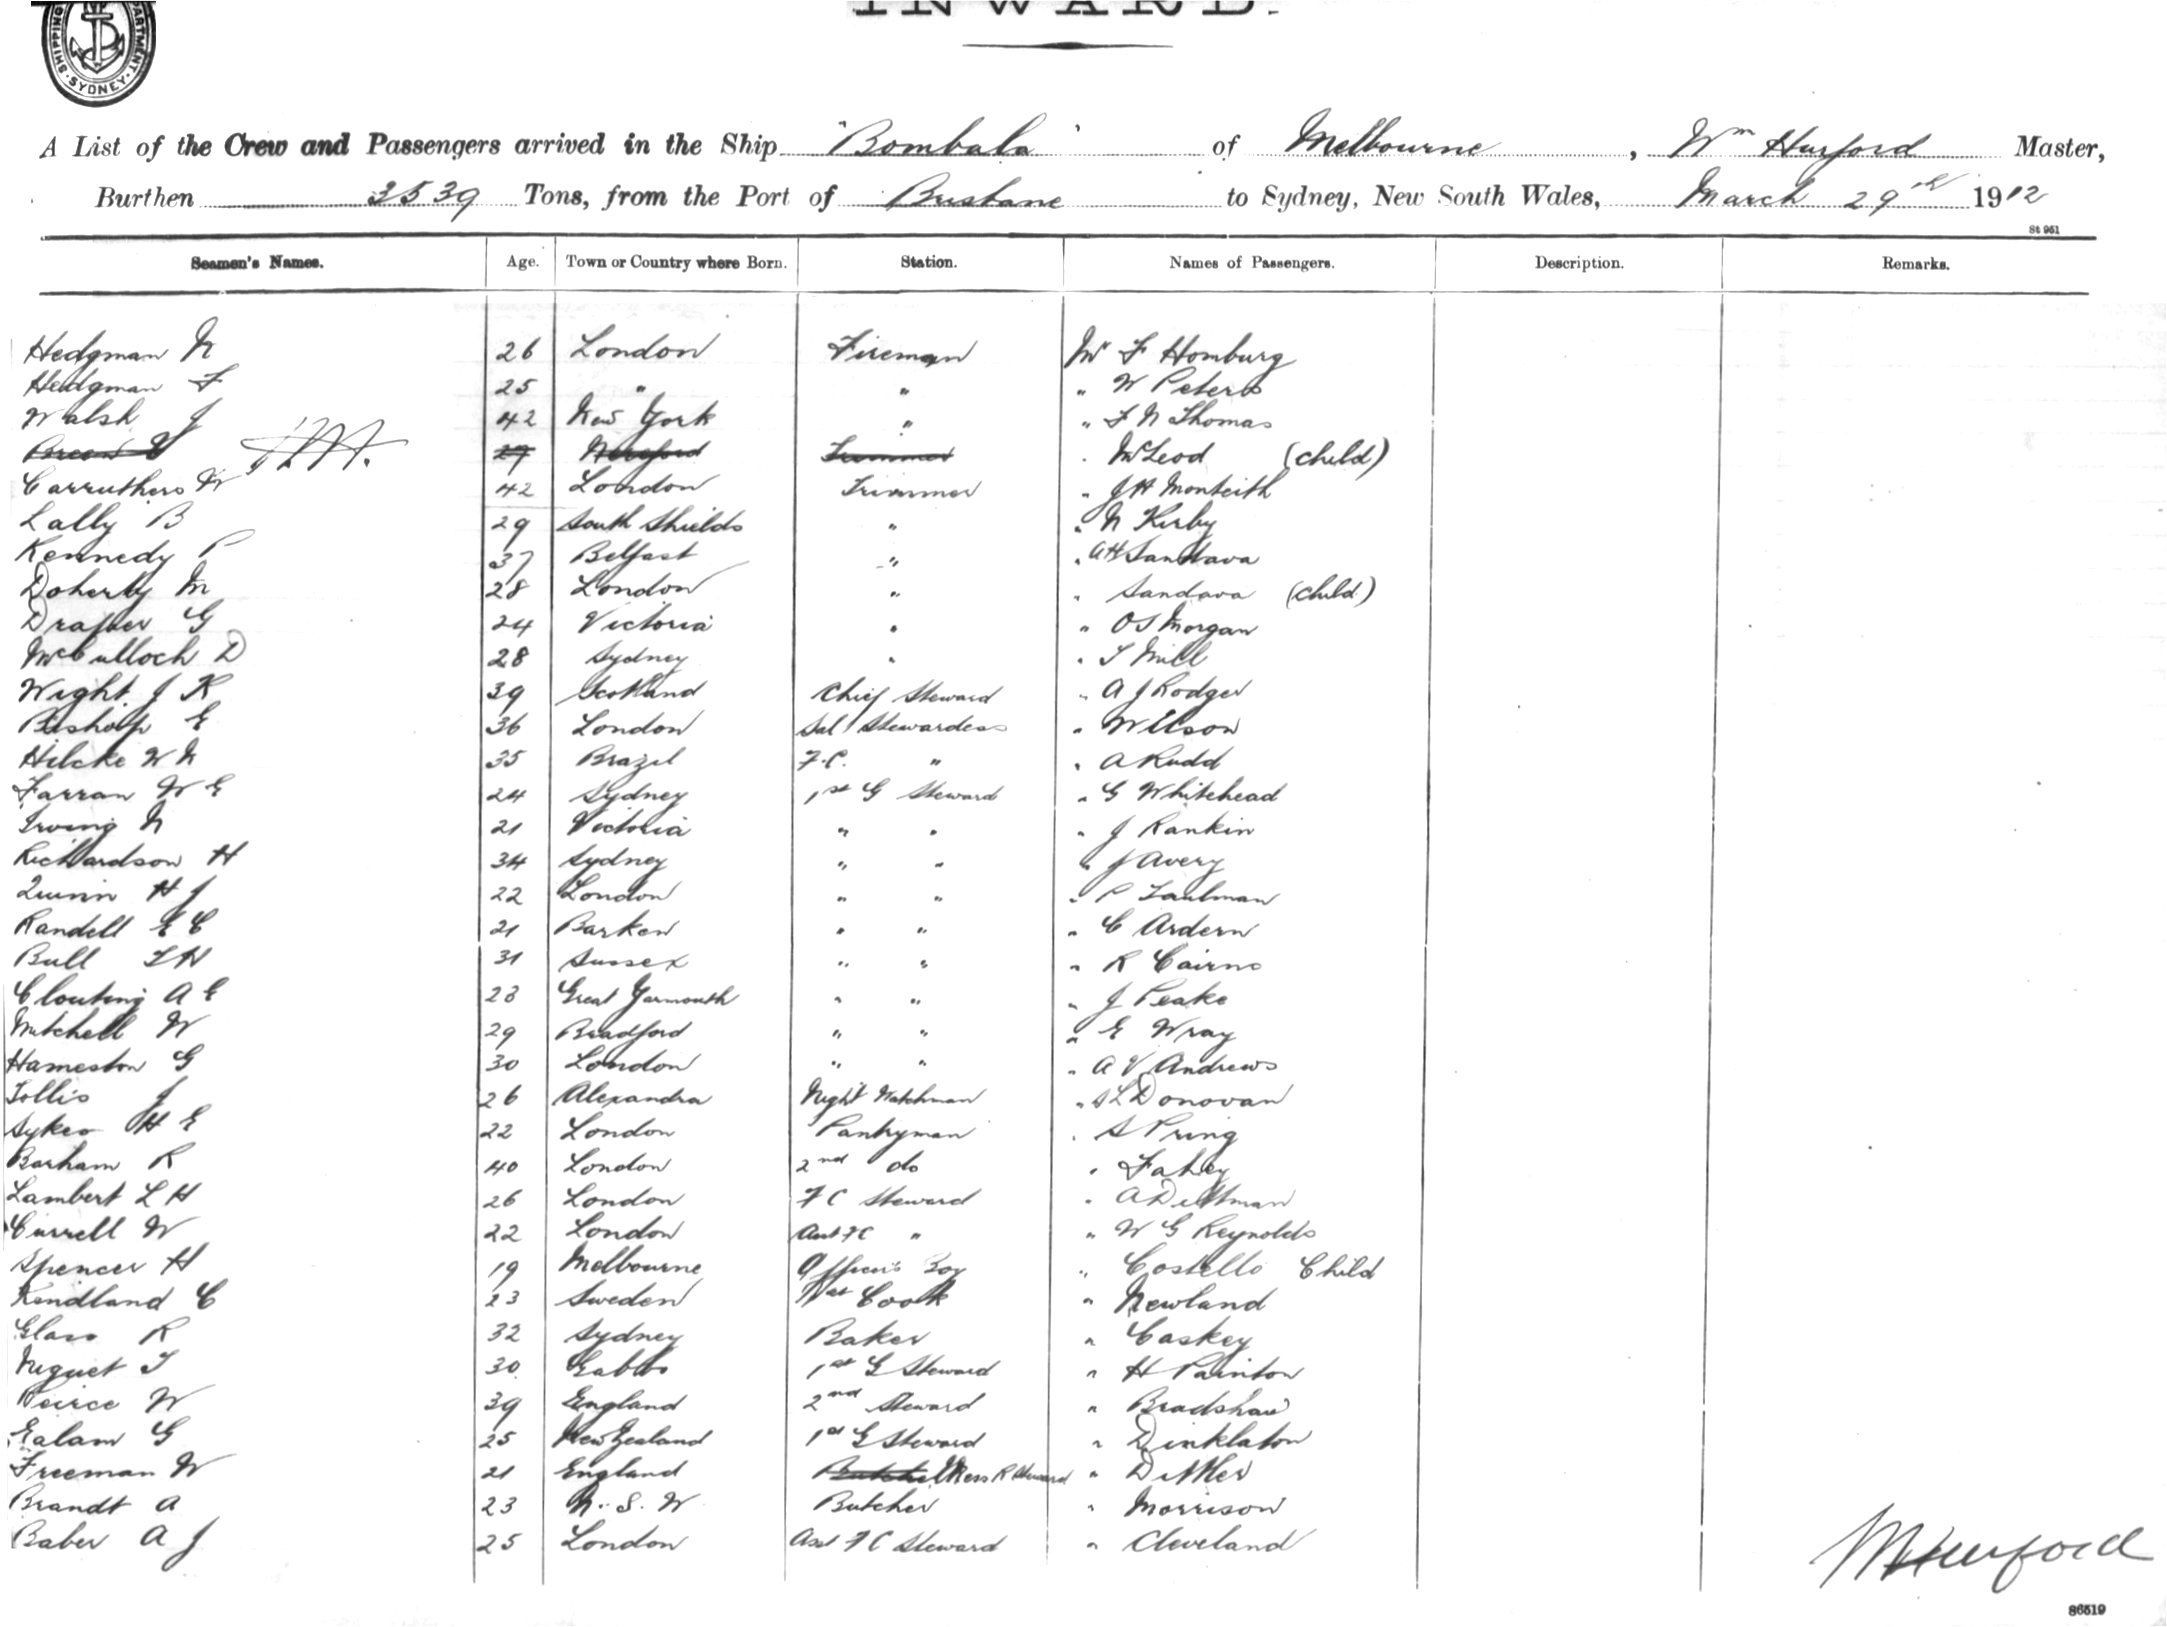 INWARD.
SHIPPING DEPARTMENT. SYDNEY
A List of the Crew and Passengers arrived in the Ship "Bombala" of Melbourne, Wm Hurford Master,
Burthen 3539 Tons, from the Port of Brisbane to Sydney, New South Wales, March 29th 1912
St 951
Seamen's Names. Age. Town or Country where Born. Station. Names of Passengers. Description. Remarks.
Hedgman N 26 London Fireman Mr F Homburg
Hedgman F 25 " " " W Peters
Walsh J 42 New York " " F N Thomas
27 Hereford Trimmer " McLeod (child)
Carruthers W 42 London Trimmer " J H Monteith
Lally B 29 South Shields " " N Kirby
Kennedy P 37 Belfast " " A H Sandava
Doherty M 28 London " " Sandava (child)
Draper G 24 Victoria " " O S Morgan
McCulloch D 28 Sydney " " T Mill
Wight J K 39 Scotland Chief Steward " A J Rodger
Bishop E 36 London Sal Stewardess " Wilson
Hilcke W N 35 Brazil F.C. " " A Rudd
Farran W E 24 Sydney 1st G Steward " G Whitehead
Irving N 21 Victoria " " " J Rankin
Richardson H 34 Sydney " " " J Avery
Quinn H J 22 London " " " P Taulman
Randell E C 21 Barken " " " C Ardern
Bull F H 31 Sussex " " " R Cairns
Clouting A E 23 Great Yarmouth " " " J Peake
Mitchell W 29 Bradford " " " E Wray
Hameston G 30 London " " " A V Andrews
Tollis J 26 Alexandra Night Watchman " S L Donovan
Sykes H E 22 London Pantryman " S Pring
Barham R 40 London 2nd do " Fahey
Lambert L H 26 London F C Steward " A Dittman
Currell W 22 London Asst F C " " W G Reynolds
Spencer H 19 Melbourne Officers Boy " Costello Child
Kendland C 23 Sweden Cook " Newland
Glass R 32 Sydney Baker " Caskey
Niguet T 30 Gabbo 1st G Steward " H Painton
Peirce W 39 England 2nd Steward " Bradshaw
Ealam G 25 New Zealand 1st G Steward " Dinklaton
Freeman W 21 England Butcher Mess R Steward " Dittler
Brandt A 23 N. S. W Butcher " Morrison
Baber A J 25 London Asst F C Steward " Cleveland
WHurford
86519